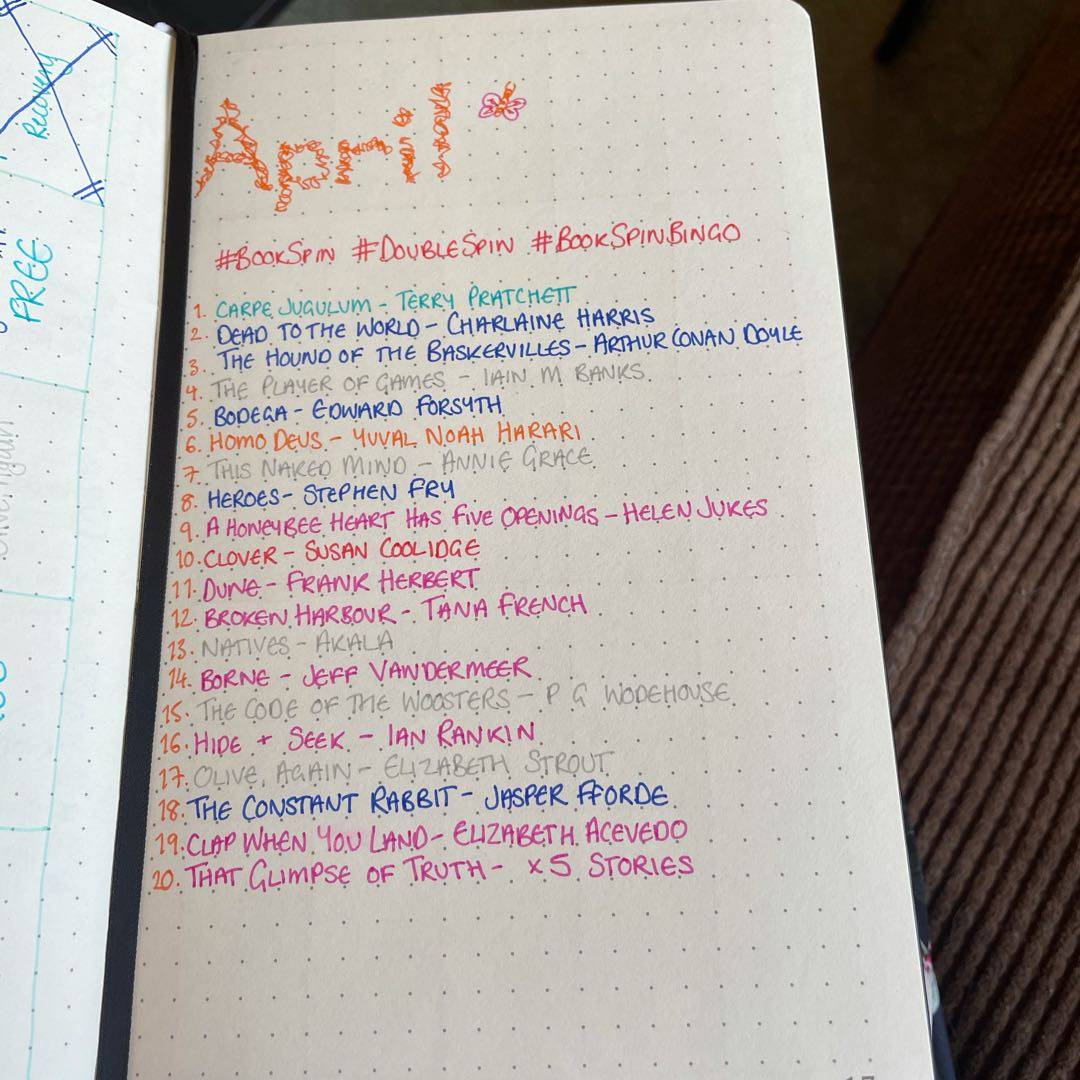 Recovery
FREE
April
#BookSpin #DoubleSpin #BookSpinBingo
1. CARPE JUGULUM - TERRY PRATCHETT
2. DEAD TO THE WORLD - CHARLAINE HARRIS
3. THE HOUND OF THE BASKERVILLES - ARTHUR CONAN DOYLE
4. THE PLAYER OF GAMES - IAIN M BANKS
5. BODEGA - EDWARD FORSYTH
6. HOMO DEUS - YUVAL NOAH HARARI
7. THIS NAKED MIND - ANNIE GRACE
8. HEROES - STEPHEN FRY
9. A HONEYBEE HEART HAS FIVE OPENINGS - HELEN JUKES
10. CLOVER - SUSAN COOLIDGE
11. DUNE - FRANK HERBERT
12. BROKEN HARBOUR - TANA FRENCH
13. NATIVES - AKALA
14. BORNE - JEFF VANDERMEER
15. THE CODE OF THE WOOSTERS - P G WODEHOUSE
16. HIDE + SEEK - IAN RANKIN
17. OLIVE, AGAIN - ELIZABETH STROUT
18. THE CONSTANT RABBIT - JASPER FFORDE
19. CLAP WHEN YOU LAND - ELIZABETH ACEVEDO
20. THAT GLIMPSE OF TRUTH - x5 STORIES